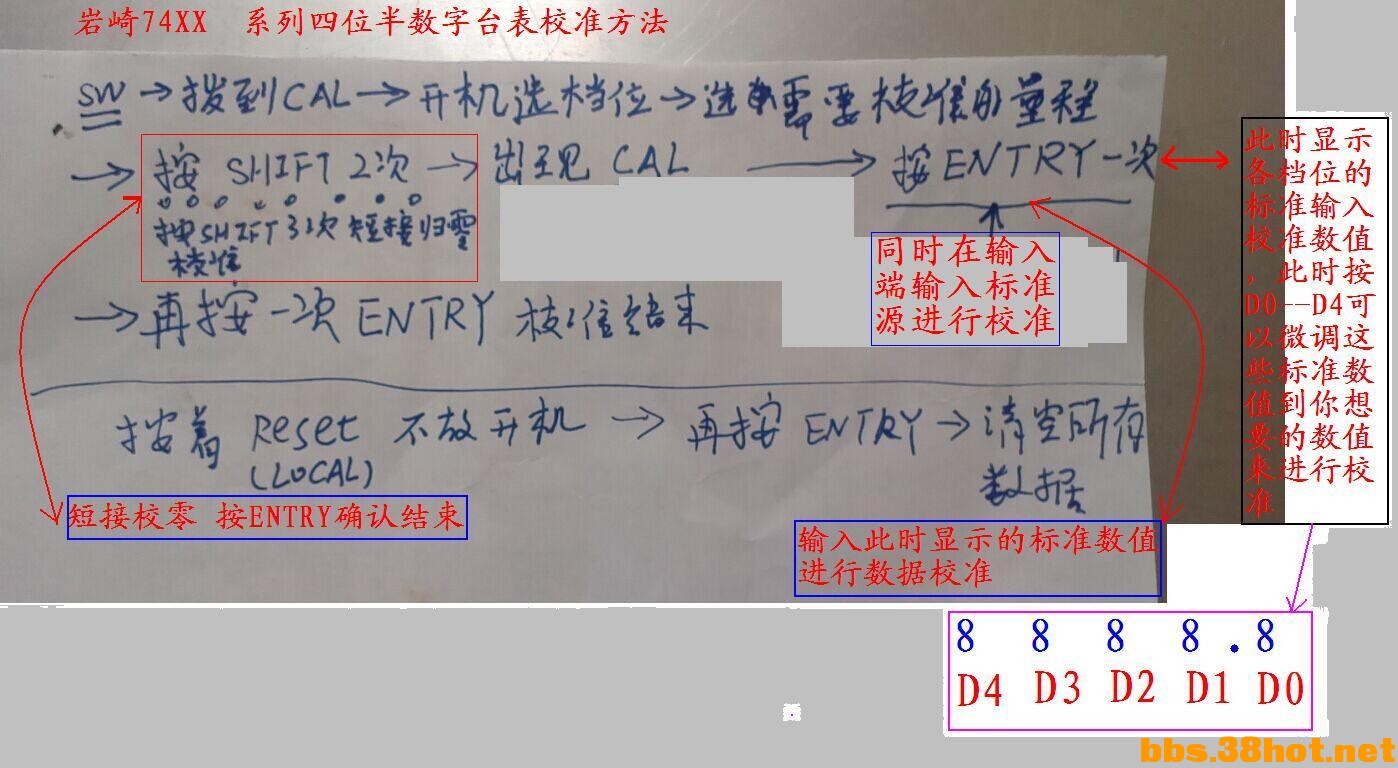 岩崎74XX 系列四位半数字台表校准方法
SW → 拨到CAL → 开机选档位 → 选需要校准的量程
→ 按 SHIFT 2次 → 出现 CAL → 按ENTRY一次
按SHIFT 3次 短接归零
校准
→ 再按一次 ENTRY 校准结束
同时在输入
端输入标准
源进行校准
此时显示
各档位的
标准输入
校准数值
，此时按
D0--D4可
以微调这
些标准数
值到你想
要的数值
来进行校
准
按着 Reset 不放开机 → 再按 ENTRY → 清空所存
(LOCAL)
数据
短接校零 按ENTRY确认结束
输入此时显示的标准数值
进行数据校准
8 8 8 8 . 8
D4 D3 D2 D1 D0
bbs.38hot.net